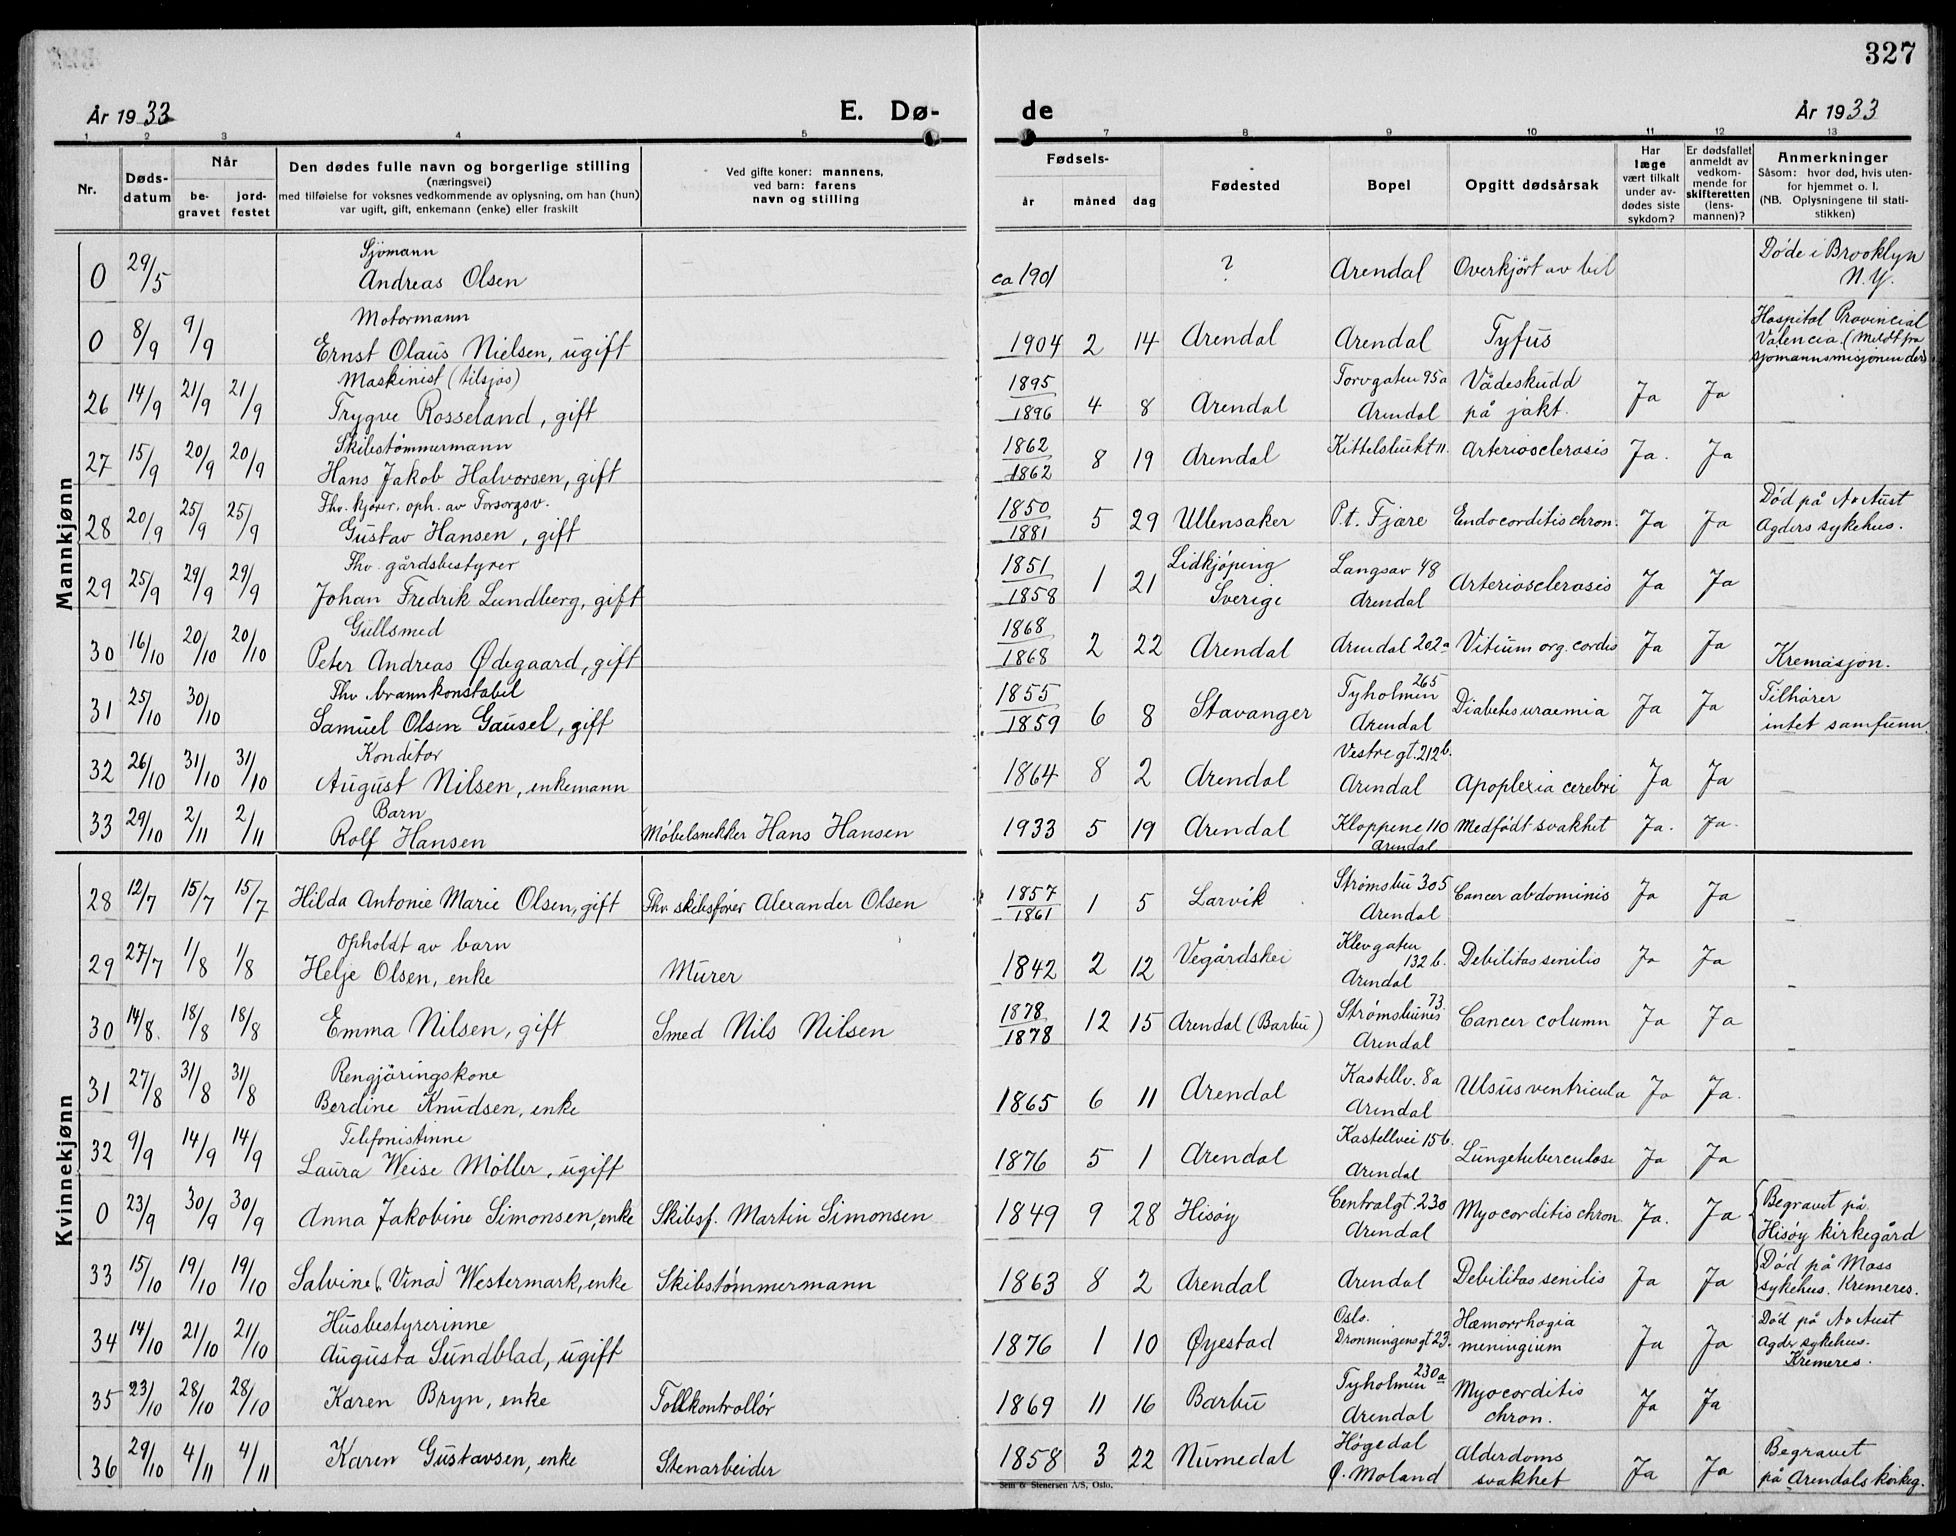 327
År 1933 E. Dø- de År 1933
1 2 3 4 5 7 8 9 10 11 12 13
Nr.
Døds-
datum
Når
be-
gravet
jord-
festet
Den dødes fulle navn og borgerlige stilling
(næringsvei)
med tilføielse for voksnes vedkommende av oplysning, om han (hun)
var ugift, gift, enkemann (enke) eller fraskilt
Ved gifte koner: mannens,
ved barn: farens
navn og stilling
Fødsels-
år måned dag
Fødested
Bopel
Opgitt dødsårsak
Har
læge
vært tilkalt
under av-
dødes siste
sykdom?
Er dødsfallet
anmeldt av
vedkom-
mende for
skifteretten
(lens-
mannen)?
Anmerkninger
Såsom: hvor død, hvis uten-
for hjemmet o. l.
(NB. Oplysningene til stati-
stikken)
Mannkjønn
Sjømann
0 29/5 Andreas Olsen ca 1901 ? Arendal Overkjørt av bil Døde i Brooklyn
N.Y.
Motormann
0 8/9 9/9 Ernst Olaus Nielsen, ugift 1904 2 14 Arendal Arendal Tyfus Hospital Provincial
Valencia. (Meldt fra
sjømannsmisjonen der)
Maskinist (tilsjøs)
26 14/9 21/9 21/9 Trygve Rosseland, gift 1895/1896 4 8 Arendal Torvgaten 95a
Arendal Vådeskudd
på jakt. Ja Ja
Skibstømmermann
27 15/9 20/9 20/9 Hans Jakob Halvorsen, gift 1862/1862 8 19 Arendal Kittelsbukt 11. Arteriosclerosis Ja. Ja
Fhv. kjører, oph. av Forsorgsv.
28 20/9 25/9 25/9 Gustav Hansen, gift 1850/1881 5 29 Ullensaker P.t. Fjære Endocorditis chron. Ja Ja Død på A. Aust
Agders sykehus.
Fhv. gårdsbestyrer
29 25/9 29/9 29/9 Johan Fredrik Lundberg, gift 1851/1858 1 21 Lidkjøping
Sverige Langsæv 48
Arendal Arteriosclerosis Ja Ja
Gullsmed
30 16/10 20/10 20/10 Peter Andreas Ødegaard, gift 1868/1868 2 22 Arendal Arendal 202a Vitium org. cordis Ja Ja Kremasjon.
Fhv. brannkonstabel
31 25/10 30/10 Samuel Olsen Gausel, gift 1855/1859 6 8 Stavanger Tyholmen 265
Arendal Diabetes uraemia Ja Ja Tilhører
intet samfunn.
Konditor
32 26/10 31/10 31/10 August Nilsen, enkemann 1864 8 2 Arendal Vestre gt. 212b.
Arendal Apoplexia cerebri Ja Ja
Barn
33 29/10 2/11 2/11 Rolf Hansen Møbelsnekker Hans Hansen 1933 5 19 Arendal Kloppene 110
Arendal Medfødt svakhet Ja. Ja.
Kvinnekjønn
28 12/7 15/7 15/7 Hilda Antonie Marie Olsen, gift Fhv. skibsfører Alexander Olsen 1857/1861 1 5 Larvik Strømsbu 305
Arendal Cancer abdominis Ja Ja
Opholdt av barn
29 27/7 1/8 1/8 Helje Olsen, enke Murer 1842 2 12 Vegårdshei Klevgaten
132 b.
Arendal Debilitas senilis Ja Ja
30 14/8. 18/8 18/8 Emma Nilsen, gift Smed Nils Nilsen 1878/1878 12 15 Arendal (Barbu) Strømsbunes 73
Arendal Cancer column Ja Ja
Rengjøringskone
31 27/8 31/8 31/8 Berdine Knudsen, enke 1865 6 11 Arendal Kastellv. 8a
Arendal Ulsus ventricula Ja Ja.
Telefonistinne
32 9/9 14/9 14/9 Laura Weise Møller, ugift 1876 5 1 Arendal Kastellvei 15b.
Arendal Lungetuberculose Ja Ja
0 23/9 30/9 30/9 Anna Jakobine Simonsen, enke Skibsf. Martin Simonsen 1849 9 28 Hisøy Centralgt. 230
Arendal Myocorditis chron. Ja. Ja Begravet på
Hisøy kirkegård
33 15/10 19/10 19/10 Salvine (Vina) Westermark, enke Skibstømmermann 1863 8 2 Arendal Arendal Debilitas senilis Ja Ja Død på Moss
sykehus. Kremeres.
Husbestyrerinne
34 14/10 21/10 21/10 Augusta Sundblad, ugift 1876 1 10 Øyestad Oslo.
Dronningensgt 23. Hæmorrhagia
meningium Ja Ja Død på A. Aust
Agder sykehus.
Kremeres.
35 23/10 28/10 28/10 Karen Bryn, enke Tollkontrollør 1869 11 16 Barbu Tyholmen 230a
Arendal Myocorditis
chron. Ja Ja
36 29/10 4/11 4/11 Karen Gustavsen, enke Stenarbeider 1858 3 22 Numedal Høgedal
Ø. Moland Alderdoms
svakhet Ja Ja Begravet
på Arendals kirkeg.
Sem & Stenersen A/S, Oslo.